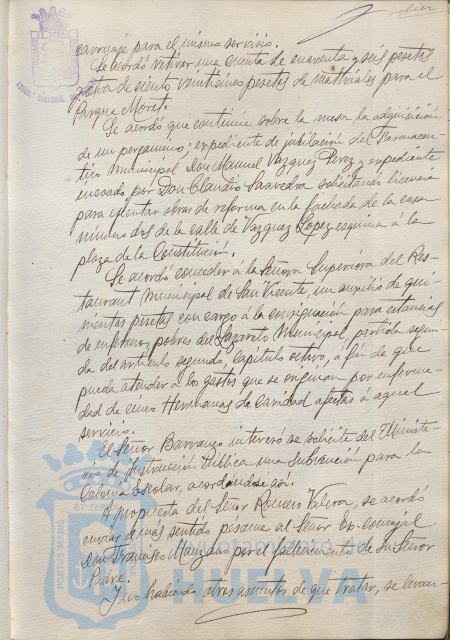 diez
carruaje para el mismo servicio.
Se acordó retirar una cuenta de cuarenta y seis pesetas
y otra de ciento veintiseis pesetas de materiales para el
Parque Moret.
Se acordó que continue sobre la mesa la adquisición
de un pergamino; expediente de jubilación del Farmaceu-
tico Municipal Don Manuel Vazquez Perez y expediente
incoado por Don Claudio Saavedra solicitando licencia
para ejecutar obras de reforma en la fachada de la casa
número dos de la calle de Vazquez Lopez esquina á la
plaza de la Constitución.
Se acordó conceder á la Señora Superiora del Res-
taurant Municipal de San Vicente, un auxilio de qui-
nientas pesetas con cargo á la consignación para estancias
de enfermos pobres del Lazareto Municipal, partida segun-
da del artículo segundo, Capitulo octavo, á fin de que
pueda atender á los gastos que se originan por enferme-
dad de Hermanas de Caridad afectas á aquel
servicio.
El Señor Barranco interesó se solicite del Ministe-
rio de Instrucción Publica una subvención para la
Colonia Escolar, acordándose así.
A propuesta del Señor Romero Valera, se acordó
enviar el más sentido pesame al Señor Ex-Concejal
Don Francisco Manzano por el fallecimiento de su Señor
Padre.
Y no habiendo otros asuntos de que tratar, se levan-
Ayuntamiento de
HUELVA
PORTUS MARIS